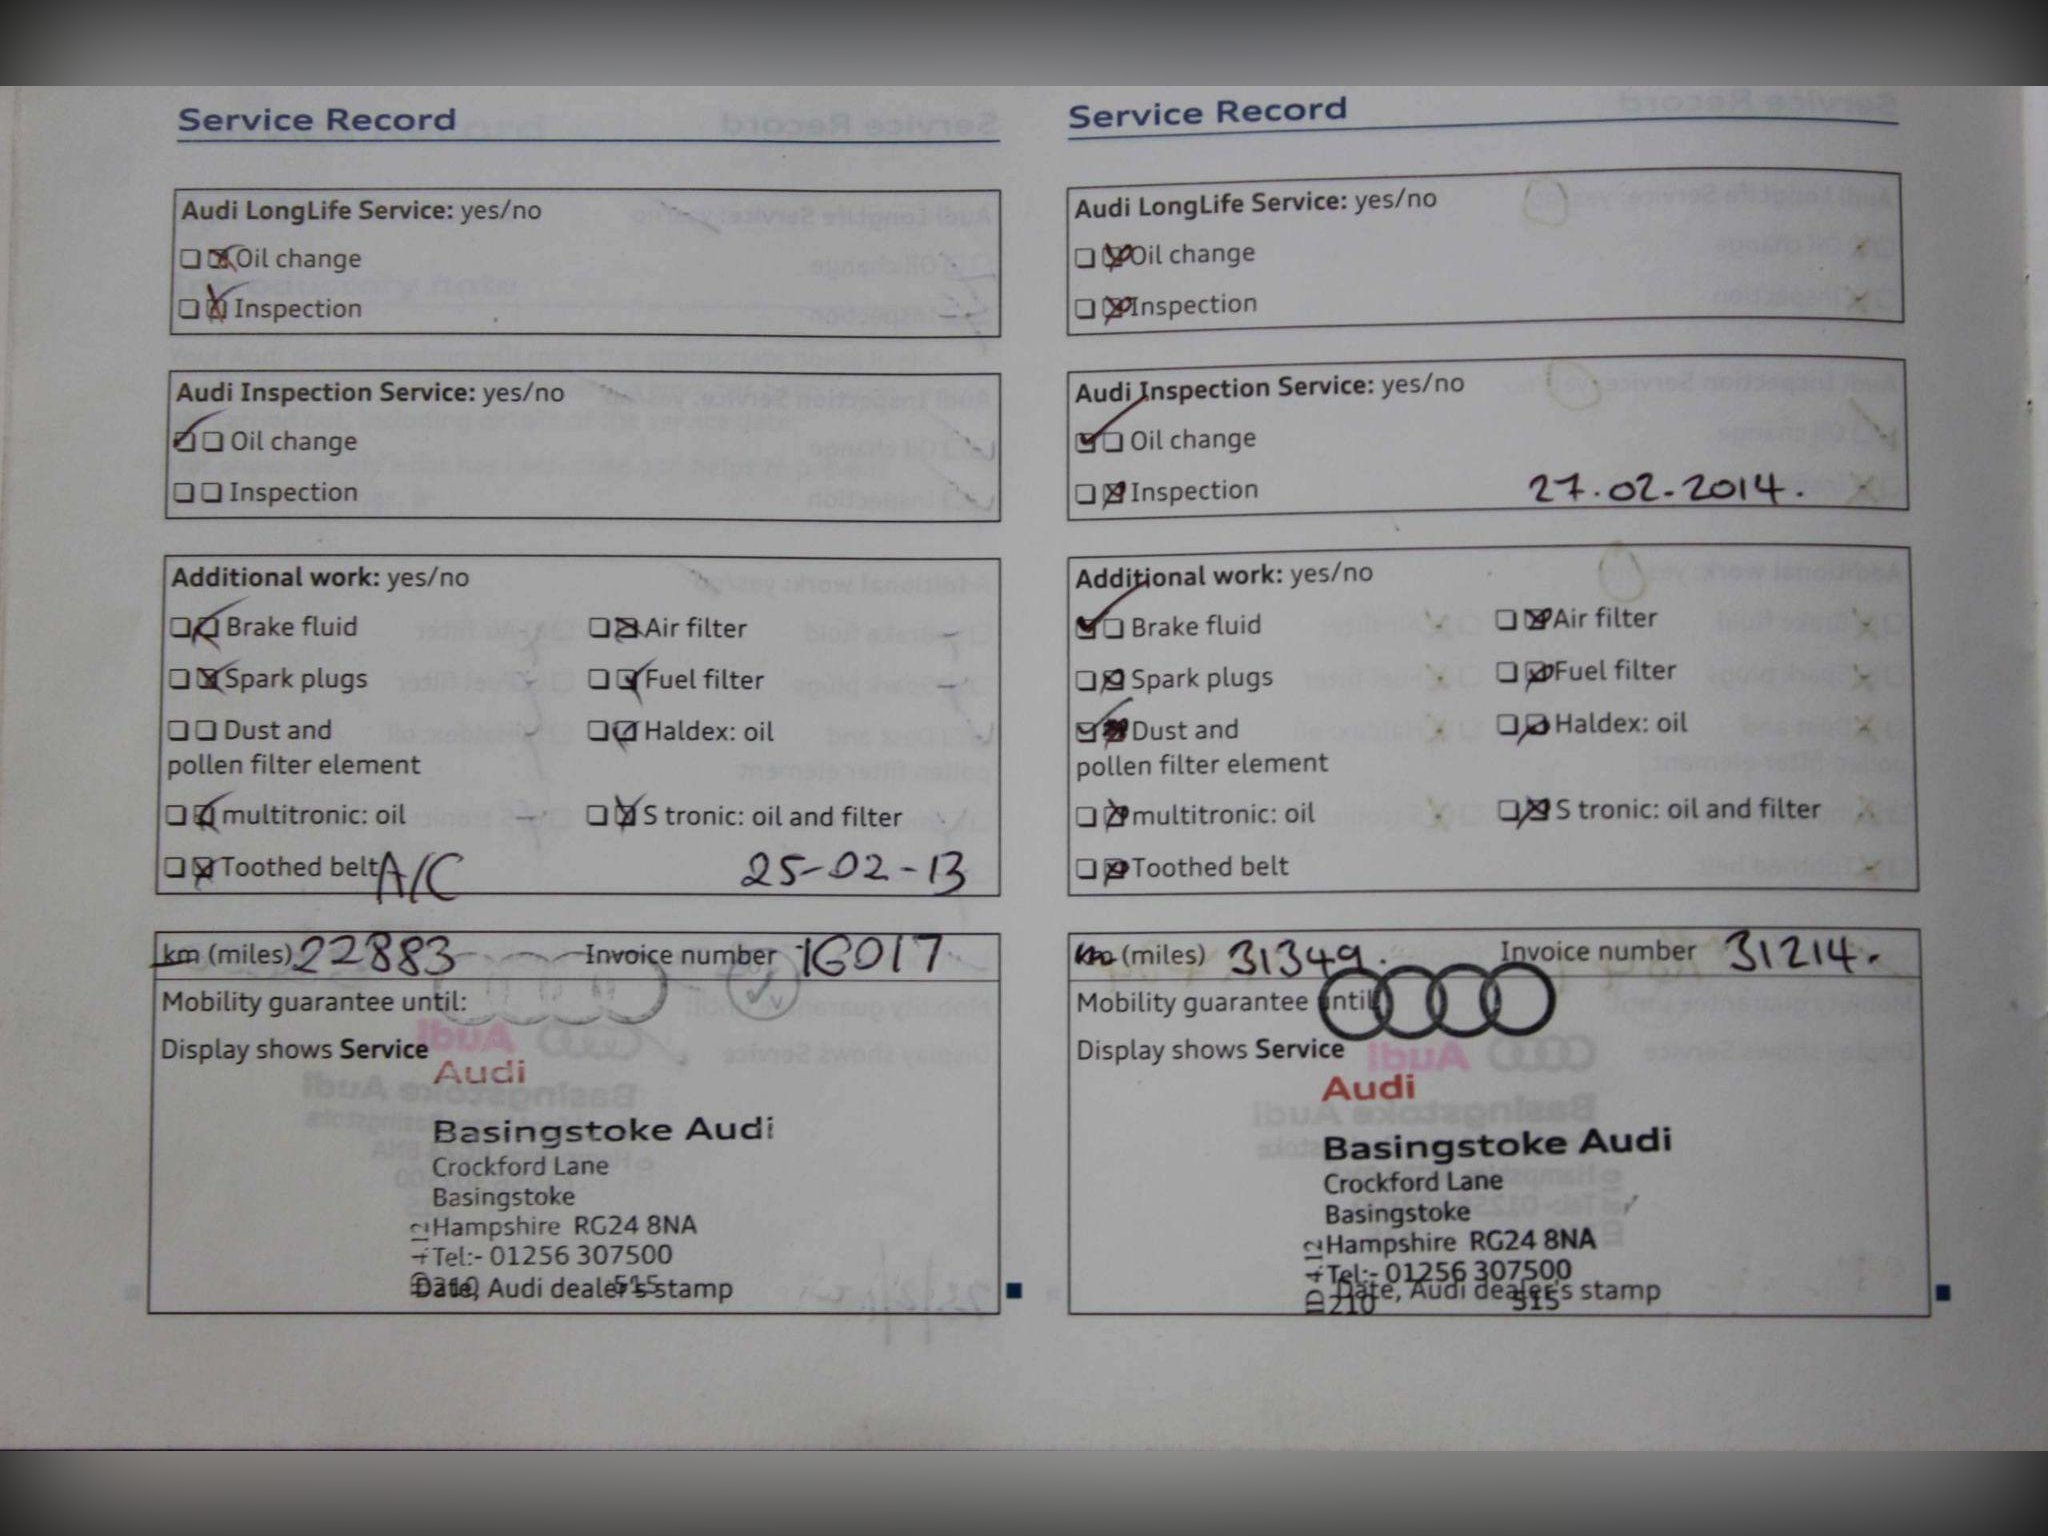 Service Record
Audi LongLife Service: yes/no
Oil change
Inspection
Audi Inspection Service: yes/no
Oil change
Inspection
Additional work: yes/no
Brake fluid
Air filter
Spark plugs
Fuel filter
Dust and
pollen filter element
Haldex: oil
multitronic: oil
S tronic: oil and filter
Toothed belt A/C
25-02-13
km (miles) 22883
Invoice number 16017
Mobility guarantee until:
Display shows Service
Audi
Basingstoke Audi
Crockford Lane
Basingstoke
Hampshire RG24 8NA
Tel:- 01256 307500
Date, Audi dealer's stamp
515
Service Record
Audi LongLife Service: yes/no
Oil change
Inspection
Audi Inspection Service: yes/no
Oil change
Inspection
27.02.2014.
Additional work: yes/no
Brake fluid
Air filter
Spark plugs
Fuel filter
Dust and
pollen filter element
Haldex: oil
multitronic: oil
S tronic: oil and filter
Toothed belt
km (miles) 31349.
Invoice number 31214.
Mobility guarantee until:
Display shows Service
Audi
Basingstoke Audi
Crockford Lane
Basingstoke
Hampshire RG24 8NA
Tel:- 01256 307500
Date, Audi dealer's stamp
210 515
ID 412